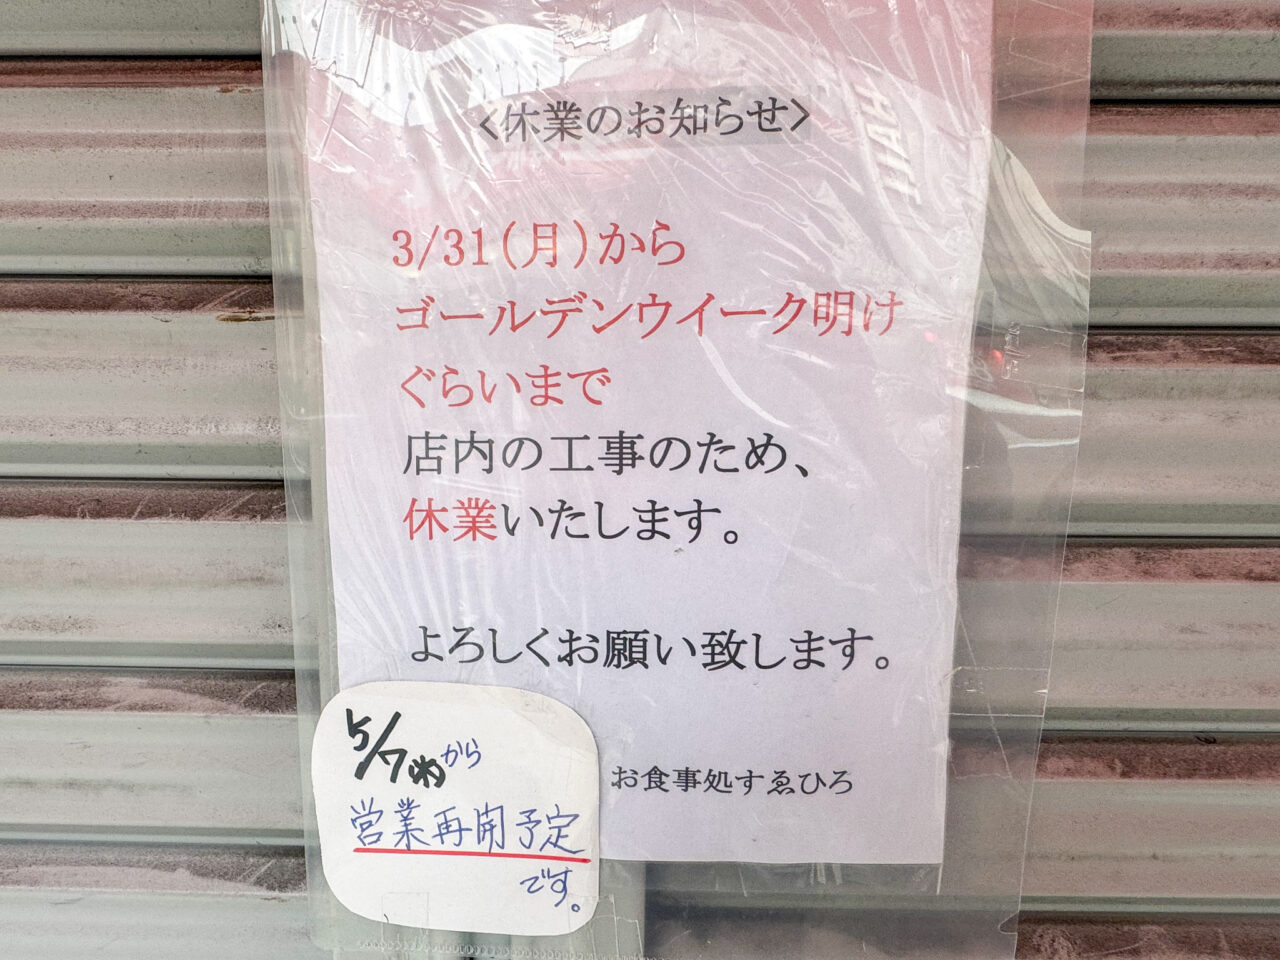 <休業のお知らせ>
3/31(月)から
ゴールデンウイーク明け
ぐらいまで
店内の工事のため、
休業いたします。
よろしくお願い致します。
お食事処すゑひろ
5/7㈬から
営業再開予定
です。